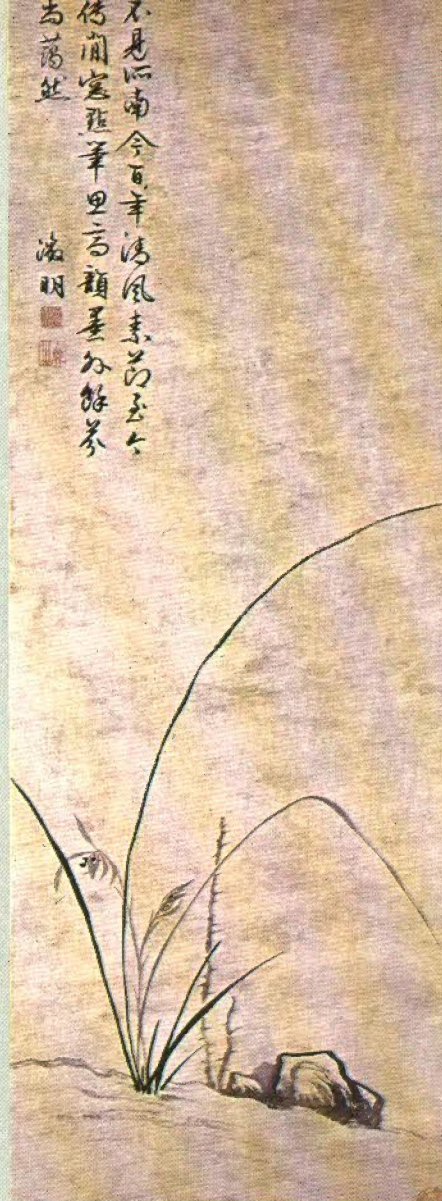 不見所南今百年清風素節至今
傳閒窗點筆思高韻墨外餘芬
尚藹然
徵明